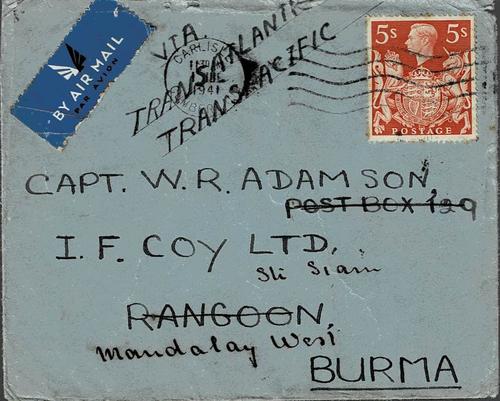 BY AIR MAIL
PAR AVION
VIA
TRANSATLANTIC
TRANSPACIFIC
CARLISLE
1941
5s 5s
POSTAGE
CAPT. W. R. ADAMSON,
POST BOX 129
I. F. COY LTD,
Siam
RANGOON,
Mandalay West
BURMA